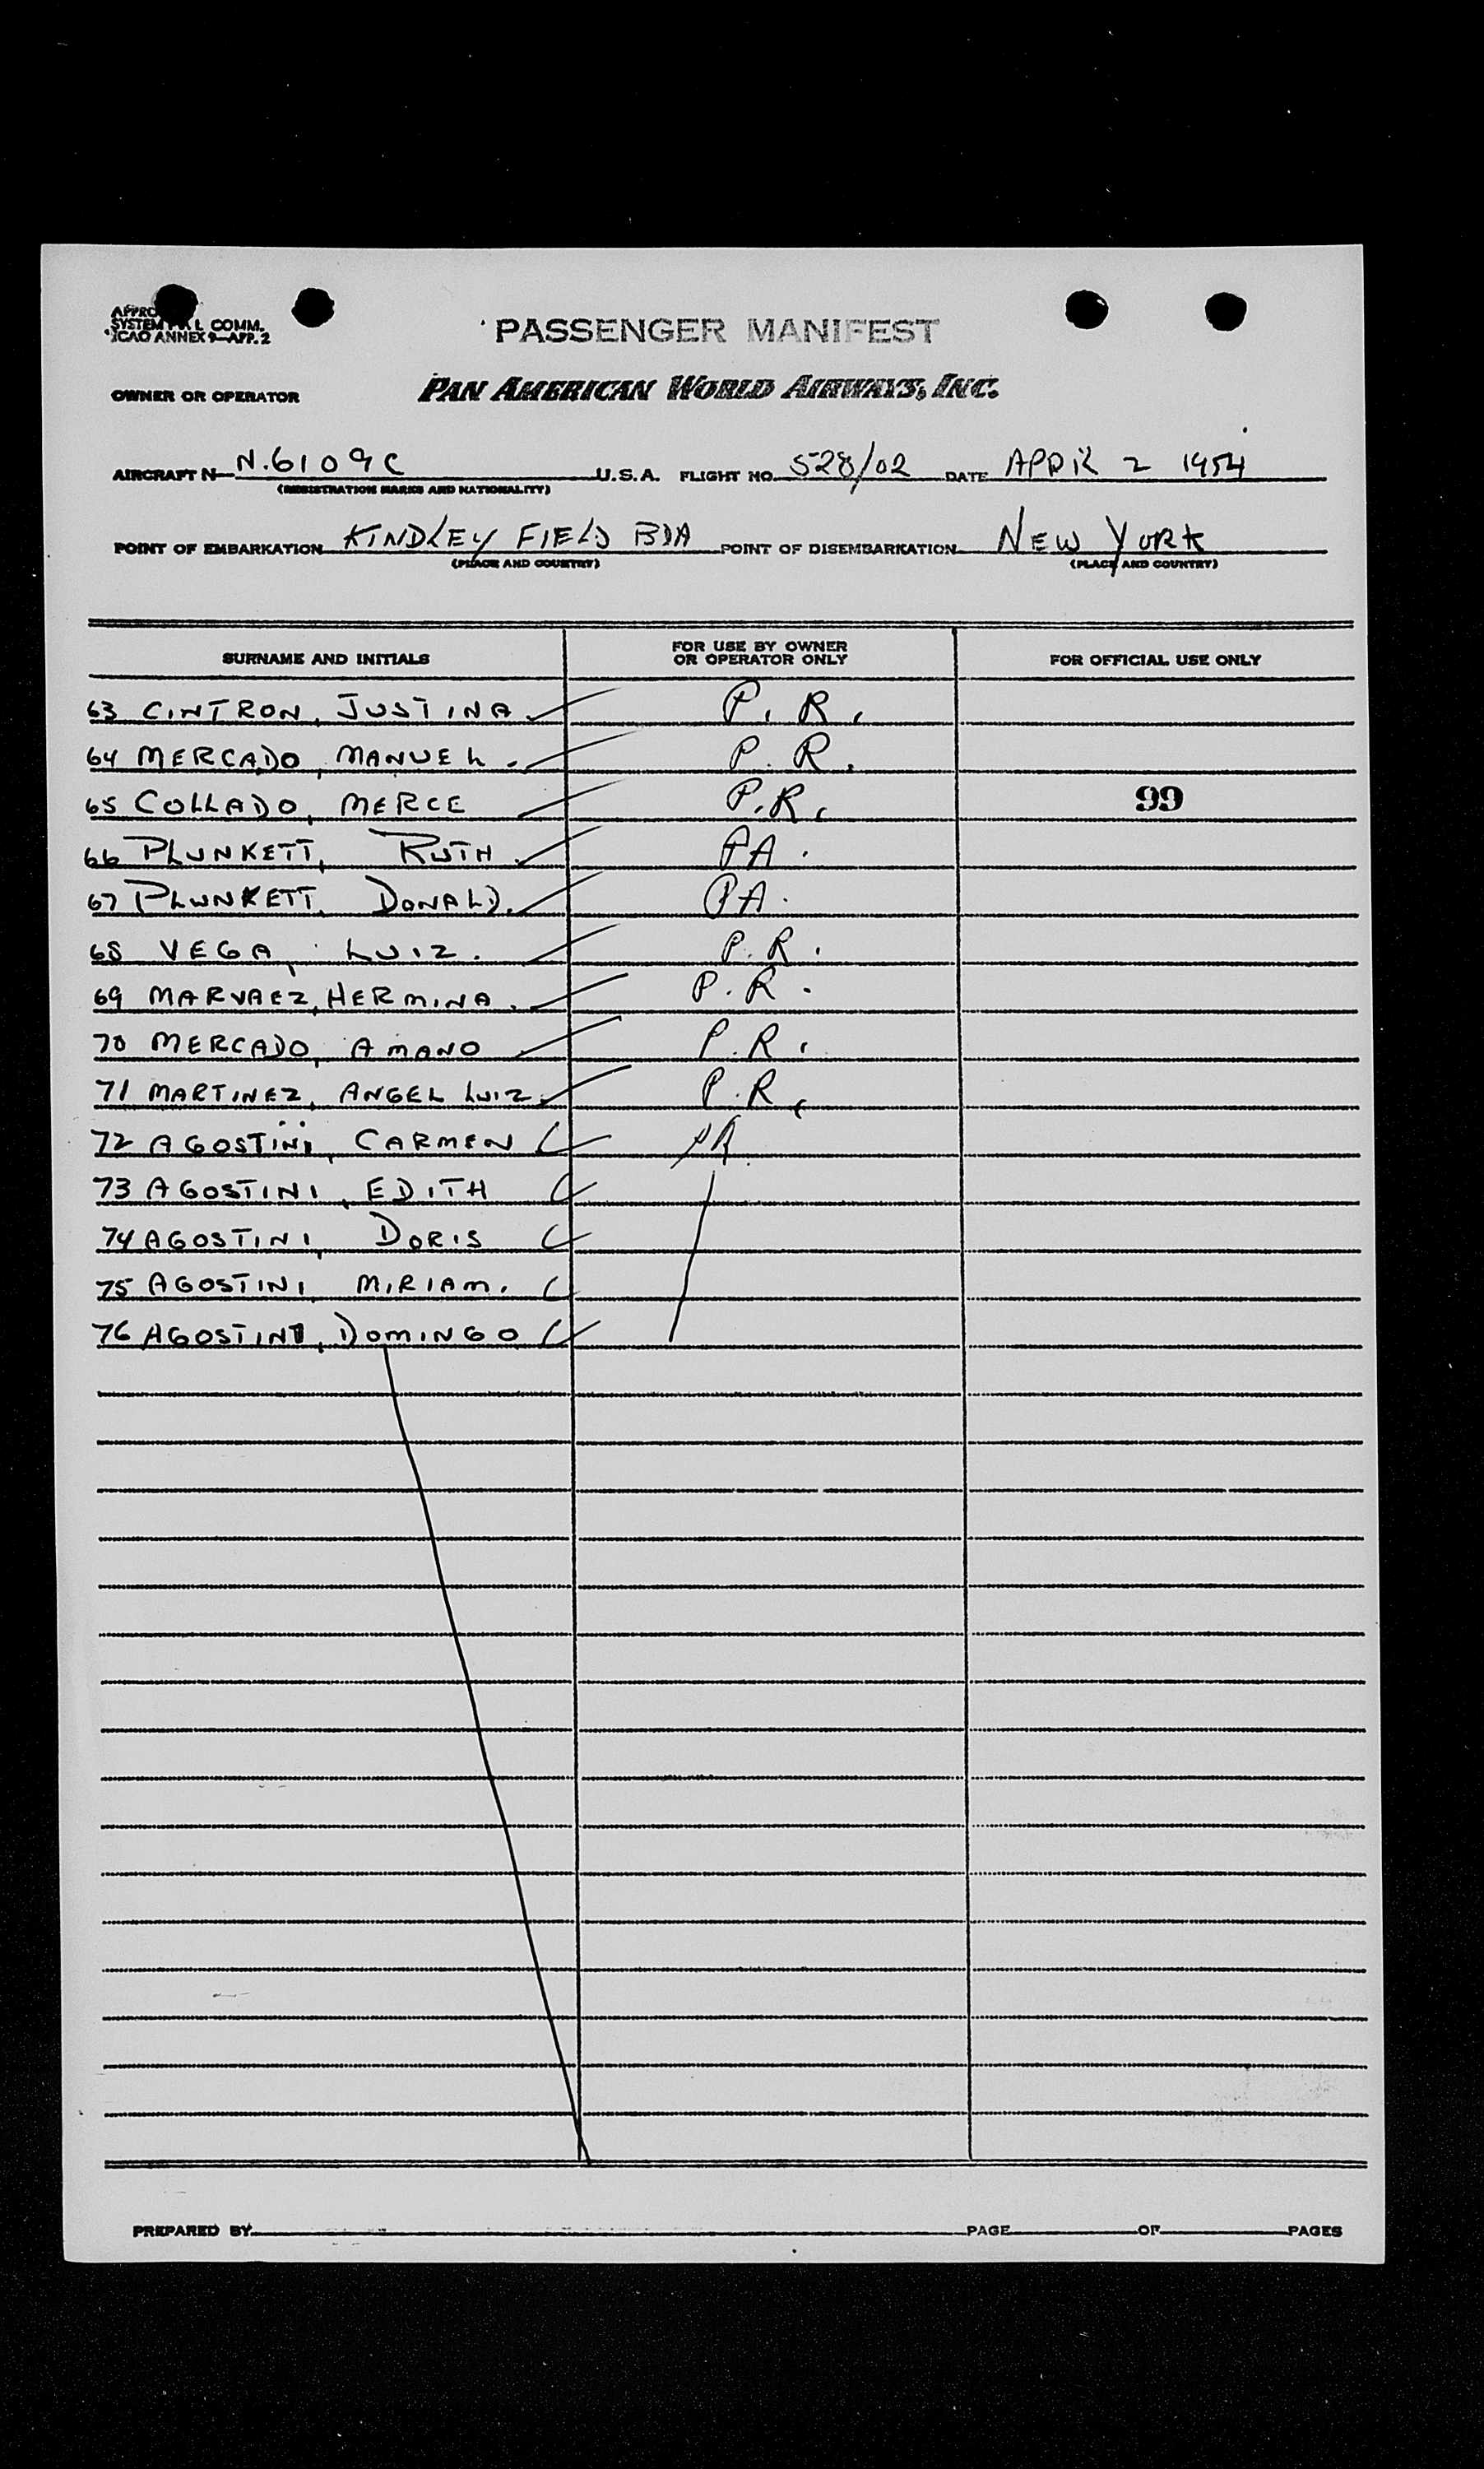 SYSTEM COMM.
ICAO ANNEX 9—APP. 2
PASSENGER MANIFEST
OWNER OR OPERATOR PAN AMERICAN WORLD AIRWAYS, INC.
AIRCRAFT N N.6109C U.S.A. FLIGHT NO. 528/02 DATE APRIL 2 1954
(REGISTRATION MARKS AND NATIONALITY)
POINT OF EMBARKATION KINDLEY FIELD BDA POINT OF DISEMBARKATION NEW YORK
(PLACE AND COUNTRY) (PLACE AND COUNTRY)
SURNAME AND INITIALS FOR USE BY OWNER OR OPERATOR ONLY FOR OFFICIAL USE ONLY
63 CINTRON, JUSTINA P. R.
64 MERCADO, MANUEL. P. R.
65 COLLADO, MERCE P.R. 99
66 PLUNKETT, RUTH PA.
67 PLUNKETT, DONALD. PA.
68 VEGA, LUIZ. P. R.
69 MARVAEZ, HERMINA. P. R.
70 MERCADO, AMANO P. R.
71 MARTINEZ, ANGEL LUIZ. P. R.
72 AGOSTINI, CARMEN
73 AGOSTINI, EDITH
74 AGOSTINI, DORIS
75 AGOSTINI, MIRIAM.
76 AGOSTINI, DOMINGO
PREPARED BY PAGE OF PAGES